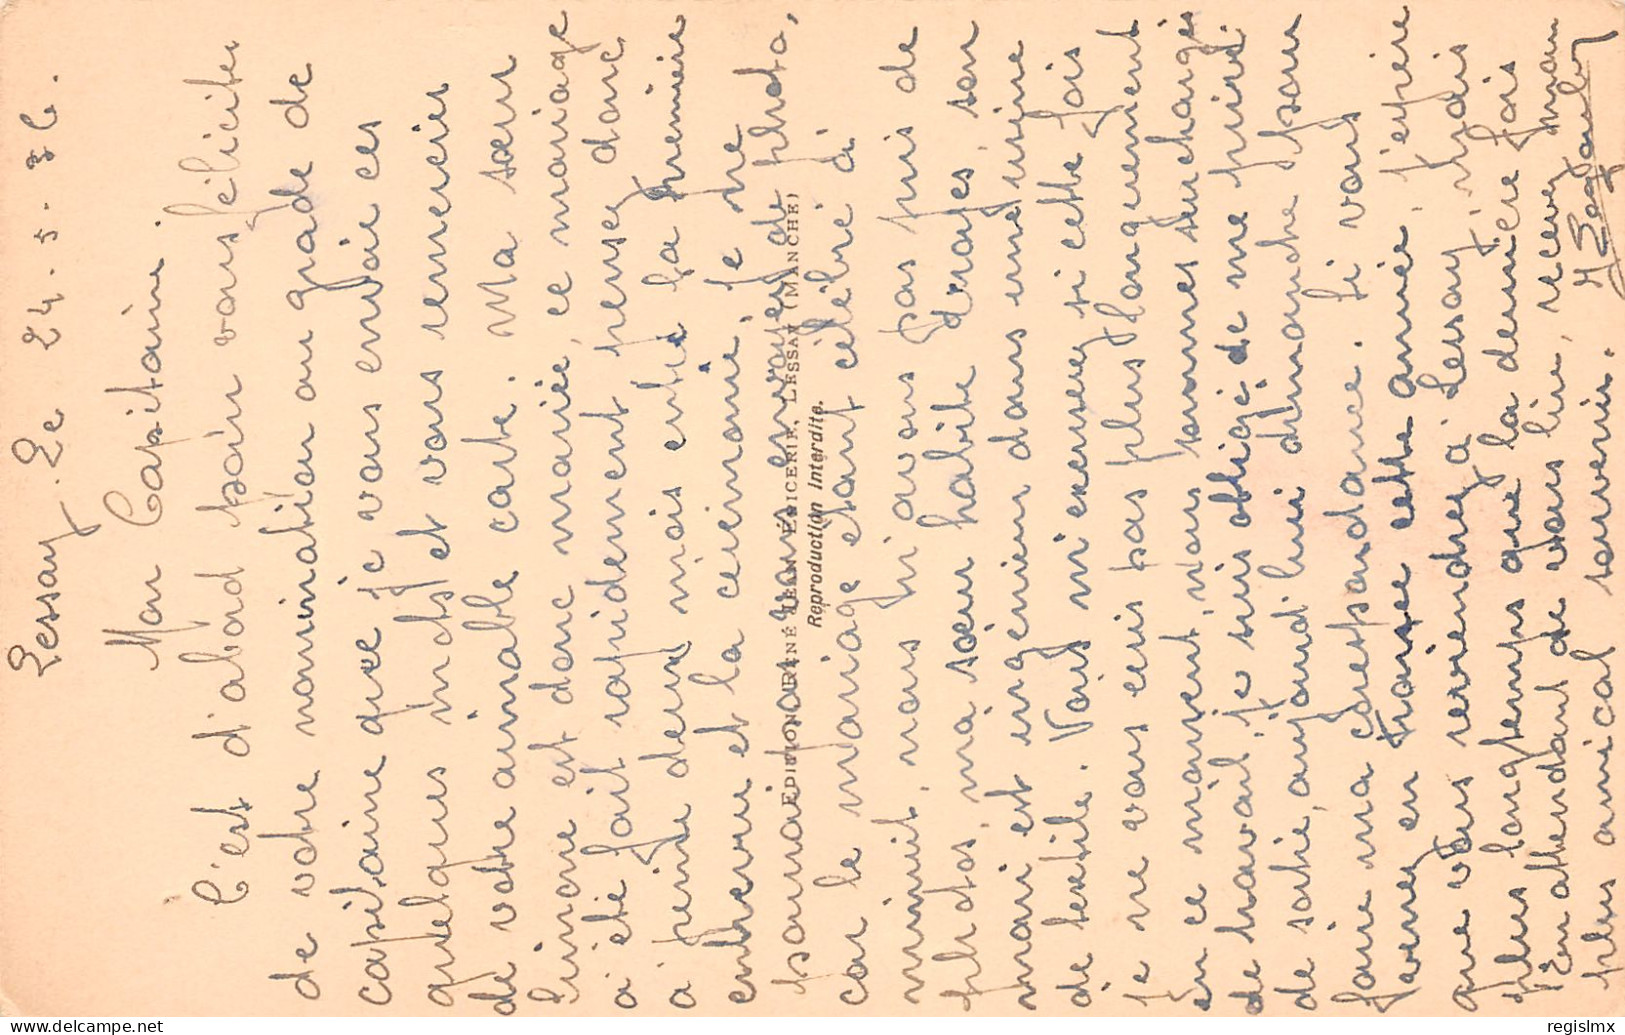 Lessay. Le 24. 5. 36.
Mon Capitaine.
C'est d'abord pour vous féliciter
de votre nomination au grade de
capitaine que je vous envoie ces
quelques mots et vous remercier
de votre aimable carte. Ma sœur
Simone est donc mariée, ce mariage
a été fait rapidement pensez donc
à peine deux mois entre la première
entrevue et la cérémonie, je ne
pourrai pas vous envoyer de photo,
car le mariage étant célébré à
minuit, nous n'avons pas pris de
photos, ma sœur habite          , son
mari est ingénieur dans une usine
de textile. Vous m'excuserez si cette fois
je ne vous écris pas plus longuement
en ce moment nous sommes surchargés
de travail, je suis obligé de me priver
de sortie, aujourd'hui dimanche pour
faire ma correspondance. Si vous
venez en France cette année, j'espère
que vous reviendrez à Lessay, mais
plus longtemps que la dernière fois
En attendant de vous lire, recevez mon
plus amical souvenir.
EDITION RENÉ JEAN ÉPICERIE, LESSAY (MANCHE)
Reproduction Interdite.
delcampe.net
regislmx